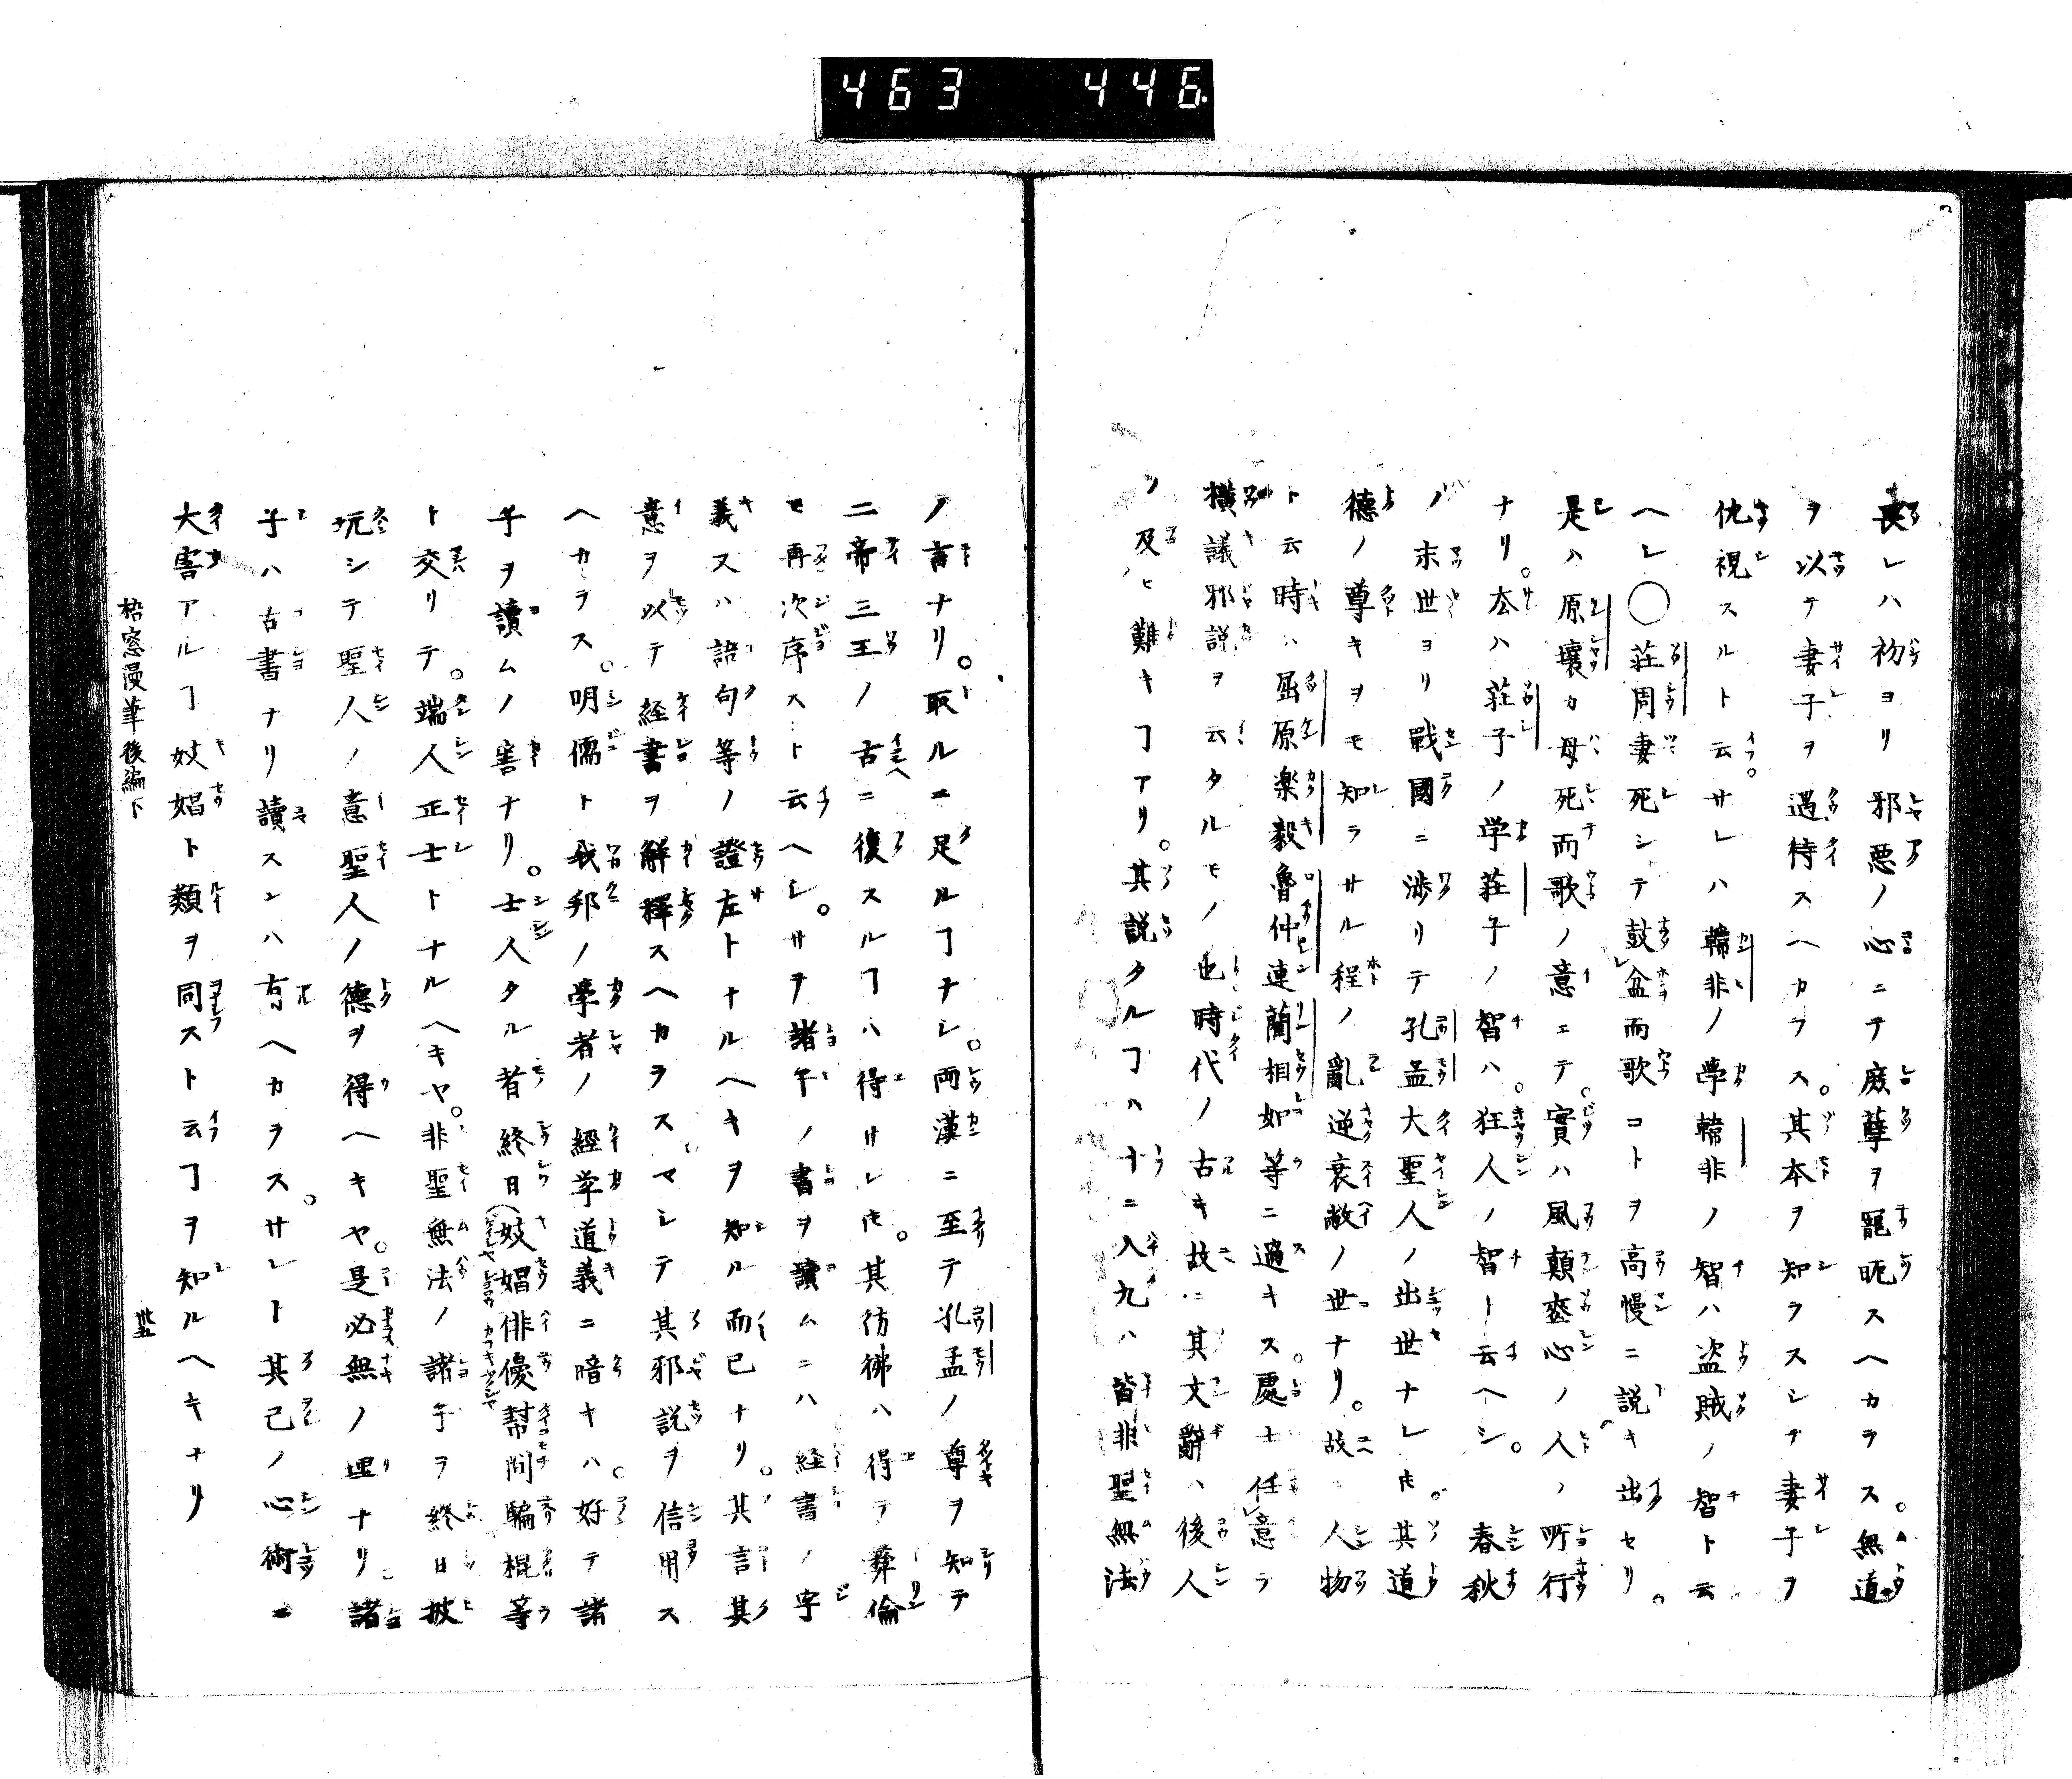 463 446
喪レハ初ヨリ邪悪ノ心ニテ庶孽ヲ寵昵スヘカラス。無道
ヲ以テ妻子ヲ遇待スヘカラス。其本ヲ知ラスシテ妻子ヲ
仇視スルト云フ。サレハ韓非ノ學韓非ノ智ハ盗賊ノ智ト云
ヘレ〇荘周妻死シテ鼓盆而歌コトヲ高慢ニ説キ出セリ。
是ハ原壤カ母死而歌ノ意ニテ。實ハ風顛喪心ノ人ノ所行
ナリ。左ハ荘子ノ学荘子ノ智ハ。狂人ノ智ト云ヘシ。春秋
ノ末世ヨリ戰國ニ渉リテ孔孟大聖人ノ出世ナレ𪜈。其道
德ノ尊キヲモ知ラサル程ノ亂逆衰敝ノ世ナリ。故ニ人物
ト云時ハ屈原楽毅魯仲連藺相如等ニ過キス。處士任意ラ
横議邪説ヲ云タルモノ也時代ノ古キ故ニ其文辭ハ後人
ノ及ヒ難キヿアリ。其説タルヿハ十ニ八九ハ皆非聖無法
ノ書ナリ。取ルニ足ルヿナシ。両漢ニ至テ孔孟ノ尊ヲ知テ
二帝三王ノ古ニ復スルヿハ得サレ𪜈。其彷彿ハ得テ彜倫
モ再次序スト云ヘシ。サテ諸子ノ書ヲ讀ムニハ経書ノ字
義又ハ語句等ノ證左トナルヘキヲ知ル而已ナリ。其言其
意ヲ以テ経書ヲ解釋スヘカラス。マシテ其邪説ヲ信用ス
ヘカラス。明儒ト我邦ノ學者ノ經学道義ニ暗キハ。好テ諸
子ヲ讀ムノ害ナリ。士人タル者終日妓娼俳優幇間騙棍等
ト交リテ。端人正士トナルヘキヤ。非聖無法ノ諸子ヲ終日披
玩シテ聖人ノ意聖人ノ德ヲ得ヘキヤ。是必無ノ理ナリ諸
子ハ古書ナリ讀スンハ有ヘカラス。サレト其己ノ心術ニ
大害アルヿ妓娼ト類ヲ同ストト云ヿヲ知ルヘキナリ
梧窓漫筆後編下
卅五